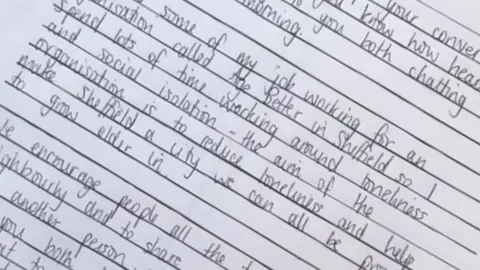 your conver
you know how hear
to you both chatting
morning.
some of my job working for an
organisation called Age Better in Sheffield so I
spend lots of time working around loneliness
and social isolation - the aim of the
organisation is to reduce loneliness and help
make Sheffield a city we can all be
to grow older in
be encourage people all the
neighbourly and to share
another person
you both